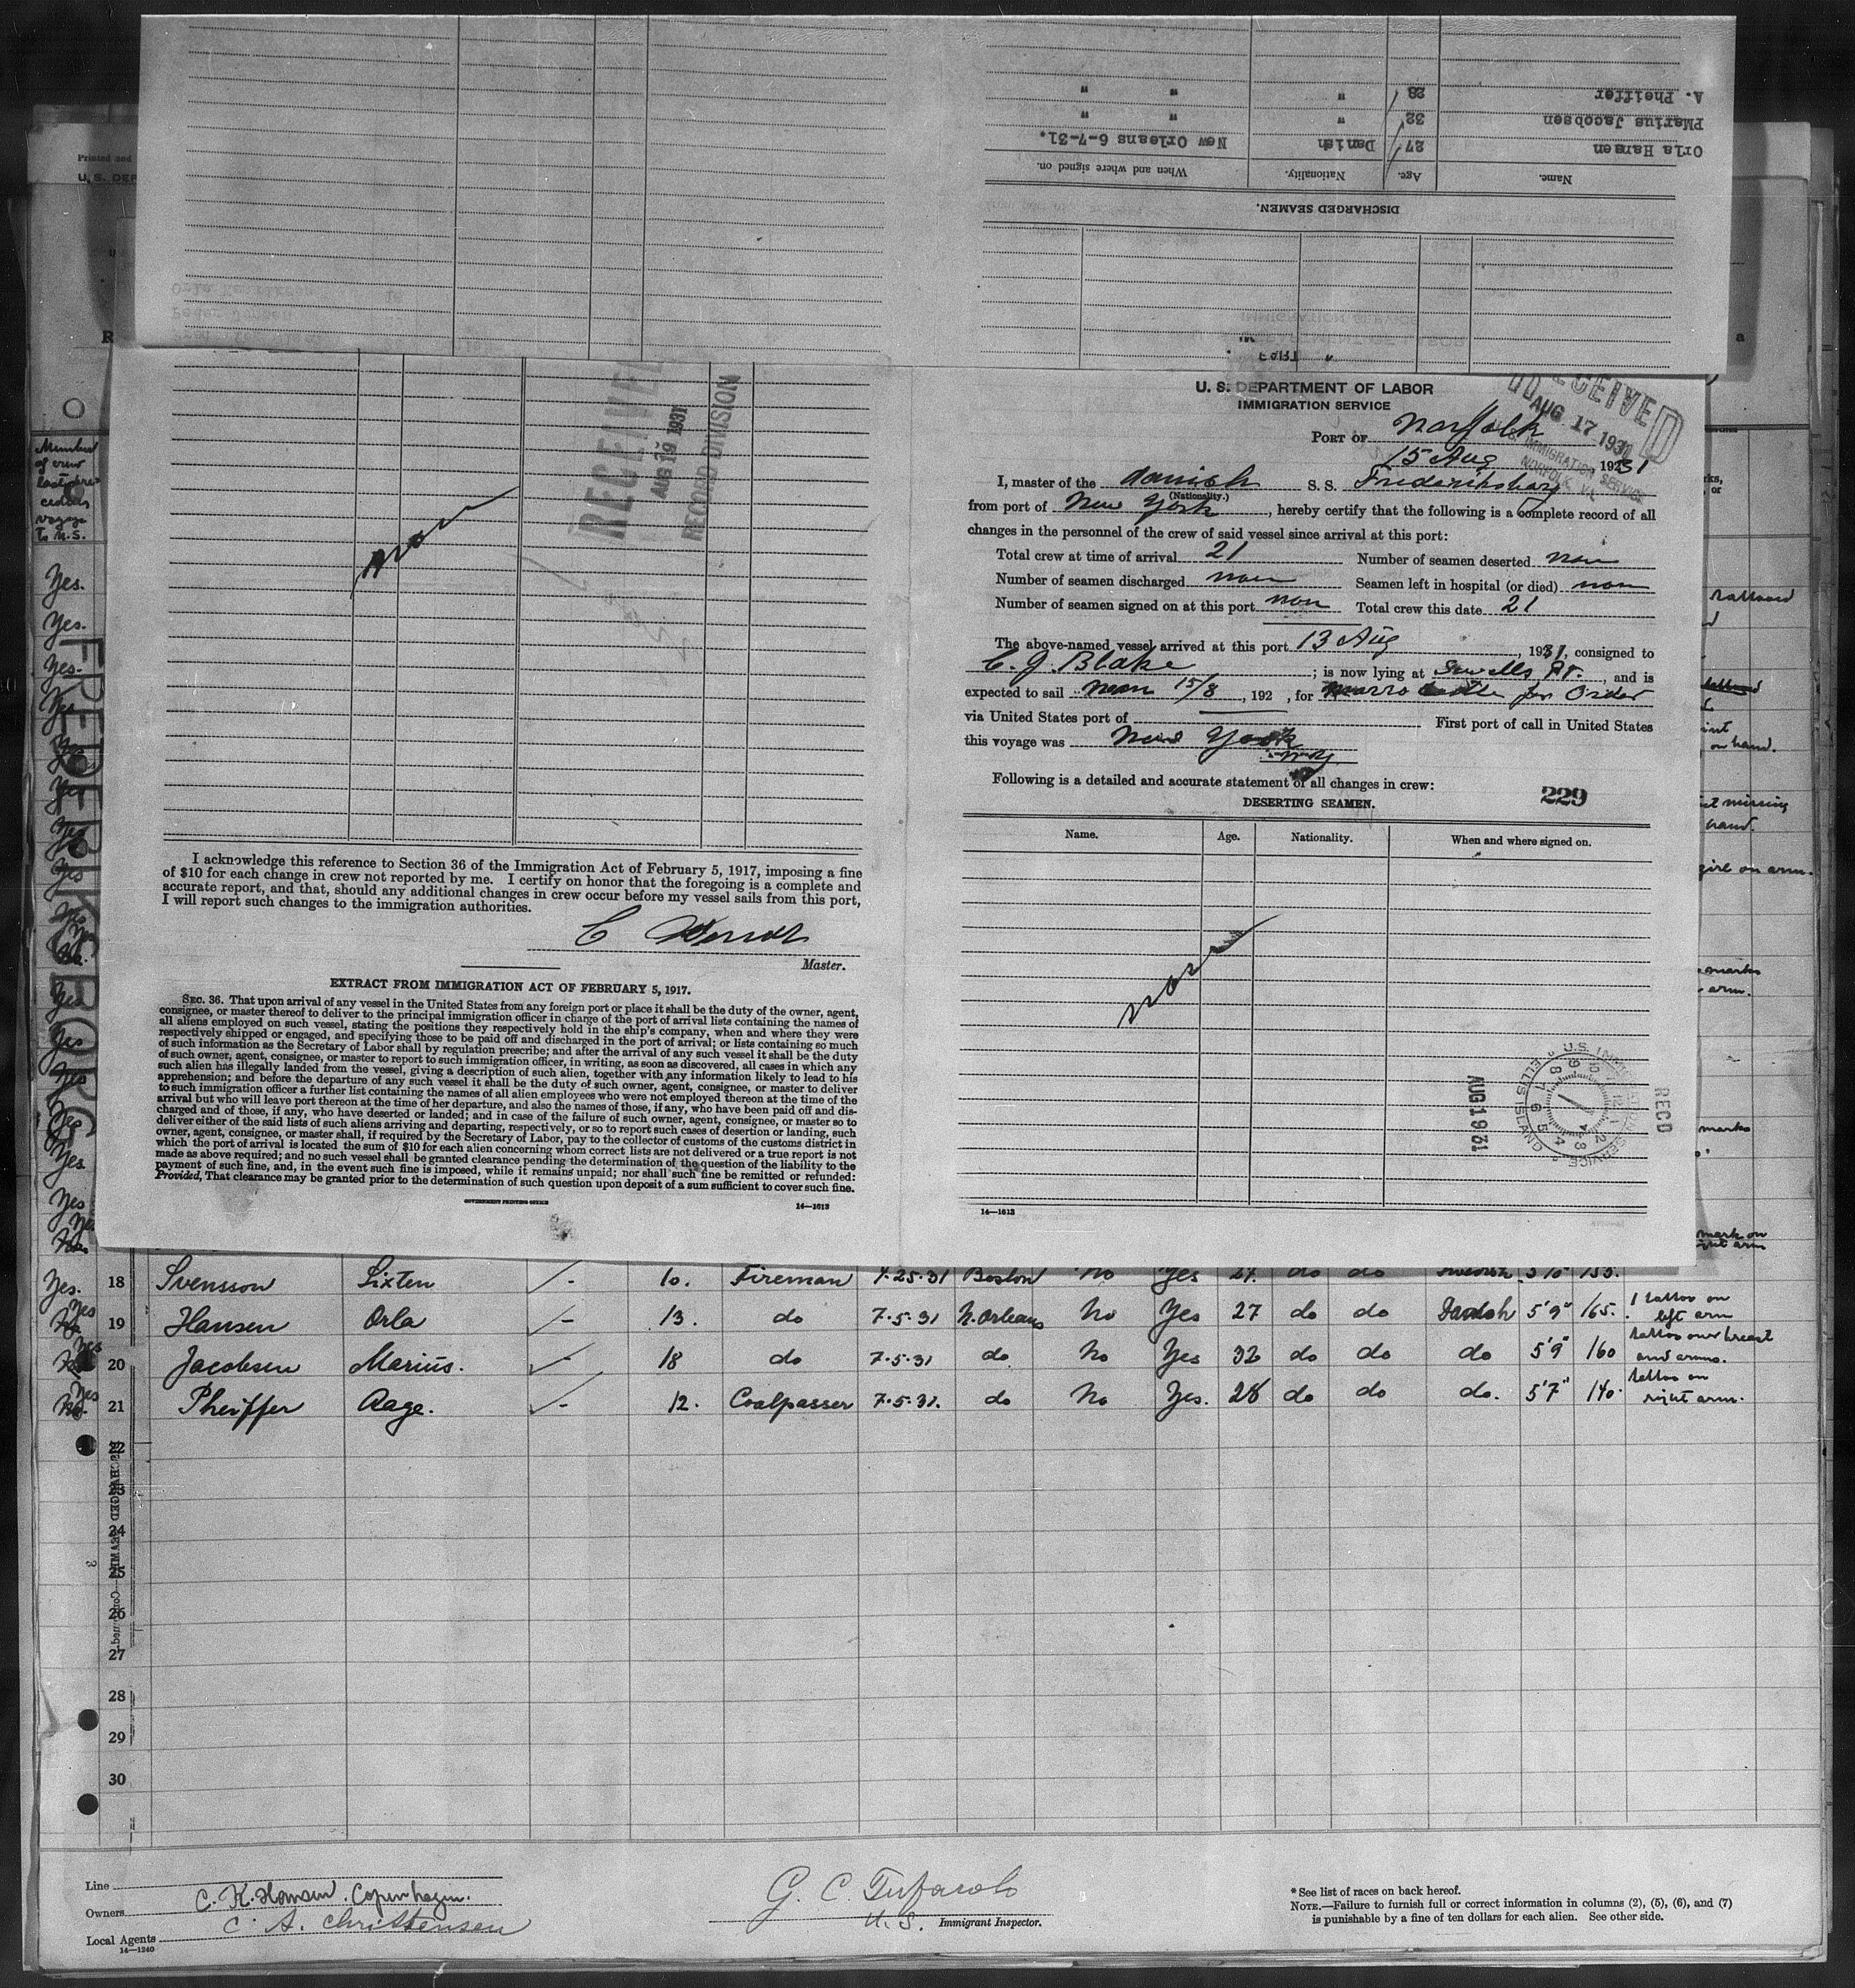 A. Pheiffer 28 " " "
PMarius Jacobsen 32 " " "
Orla Hansen 27 Danish New Orleans 6-7-31.
Name. Age. Nationality. When and where signed on.
DISCHARGED SEAMEN.
Printed and
U. S. DEP
RECEIVED
AUG 19 1931
RECORD DIVISION
non
I acknowledge this reference to Section 36 of the Immigration Act of February 5, 1917, imposing a fine
of $10 for each change in crew not reported by me. I certify on honor that the foregoing is a complete and
accurate report, and that, should any additional changes in crew occur before my vessel sails from this port,
I will report such changes to the immigration authorities.
Master.
EXTRACT FROM IMMIGRATION ACT OF FEBRUARY 5, 1917.
SEC. 36. That upon arrival of any vessel in the United States from any foreign port or place it shall be the duty of the owner, agent,
consignee, or master thereof to deliver to the principal immigration officer in charge of the port of arrival lists containing the names of
all aliens employed on such vessel, stating the positions they respectively hold in the ship's company, when and where they were
respectively shipped or engaged, and specifying those to be paid off and discharged in the port of arrival; or lists containing so much
of such information as the Secretary of Labor shall by regulation prescribe; and after the arrival of any such vessel it shall be the duty
of such owner, agent, consignee, or master to report to such immigration officer, in writing, as soon as discovered, all cases in which any
such alien has illegally landed from the vessel, giving a description of such alien, together with any information likely to lead to his
apprehension; and before the departure of any such vessel it shall be the duty of such owner, agent, consignee, or master to deliver
to such immigration officer a further list containing the names of all alien employees who were not employed thereon at the time of the
arrival but who will leave port thereon at the time of her departure, and also the names of those, if any, who have been paid off and dis-
charged and of those, if any, who have deserted or landed; and in case of the failure of such owner, agent, consignee, or master so to
deliver either of the said lists of such aliens arriving and departing, respectively, or so to report such cases of desertion or landing, such
owner, agent, consignee, or master shall, if required by the Secretary of Labor, pay to the collector of customs of the customs district in
which the port of arrival is located the sum of $10 for each alien concerning whom correct lists are not delivered or a true report is not
made as above required; and no such vessel shall be granted clearance pending the determination of the question of the liability to the
payment of such fine, and, in the event such fine is imposed, while it remains unpaid; nor shall such fine be remitted or refunded:
Provided, That clearance may be granted prior to the determination of such question upon deposit of a sum sufficient to cover such fine.
GOVERNMENT PRINTING OFFICE
14—1613
U. S. DEPARTMENT OF LABOR
IMMIGRATION SERVICE
RECEIVED
AUG 17 1931
U.S. IMMIGRATION SERVICE
NORFOLK, VA.
PORT OF Norfolk
15 Aug 1931
I, master of the danish S. S. Frederiksborg
(Nationality.)
from port of New York, hereby certify that the following is a complete record of all
changes in the personnel of the crew of said vessel since arrival at this port:
Total crew at time of arrival 21 Number of seamen deserted non
Number of seamen discharged non Seamen left in hospital (or died) non
Number of seamen signed on at this port non Total crew this date 21
The above-named vessel arrived at this port 13 Aug, 1931, consigned to
C. J. Blake; is now lying at Sewells Pt., and is
expected to sail 15/8, 192 , for for Order
via United States port of First port of call in United States
this voyage was New York
Following is a detailed and accurate statement of all changes in crew:
229
DESERTING SEAMEN.
Name. Age. Nationality. When and where signed on.
non
REC'D
AUG 19 31
U.S. IMMIGRATION SERVICE
ELLIS ISLAND
14—1613
Member
of crew
last pre-
ceding
voyage
to U.S.
Yes.
Yes.
Yes.
Yes
Yes
Yes
Yes
Yes
Yes
Yes
Yes
Yes
Yes
Yes
FREDERIKSBORG
tattooed
on hand.
missing
hand.
girl on arm.
marks
arm.
marks
mark on
right arm
Yes. 18 Svensson Sixten - 10. Fireman 7-25-31 Boston No Yes 27. do do Swedish 5'10" 155.
Yes No 19 Hansen Orla - 13. do 7-5-31 N. Orleans No Yes 27 do do Danish 5'9" 165. 1 tattoo on left arm
Yes 20 Jacobsen Marius. - 18 do 7-5-31 do No Yes 32 do do do 5'9" 160 tattoo over breast and arms.
Yes No. 21 Pheiffer Aage. - 12. Coalpasser 7-5-31. do No Yes. 28 do do do. 5'7" 140. tattoo on right arm.
22
23
24
25
26
27
28
29
30
Line
Owners C. K. Hansen. Copenhagen.
Local Agents C. A. Christensen
14—1240
U. S. Immigrant Inspector.
* See list of races on back hereof.
NOTE.—Failure to furnish full or correct information in columns (2), (5), (6), and (7)
is punishable by a fine of ten dollars for each alien. See other side.